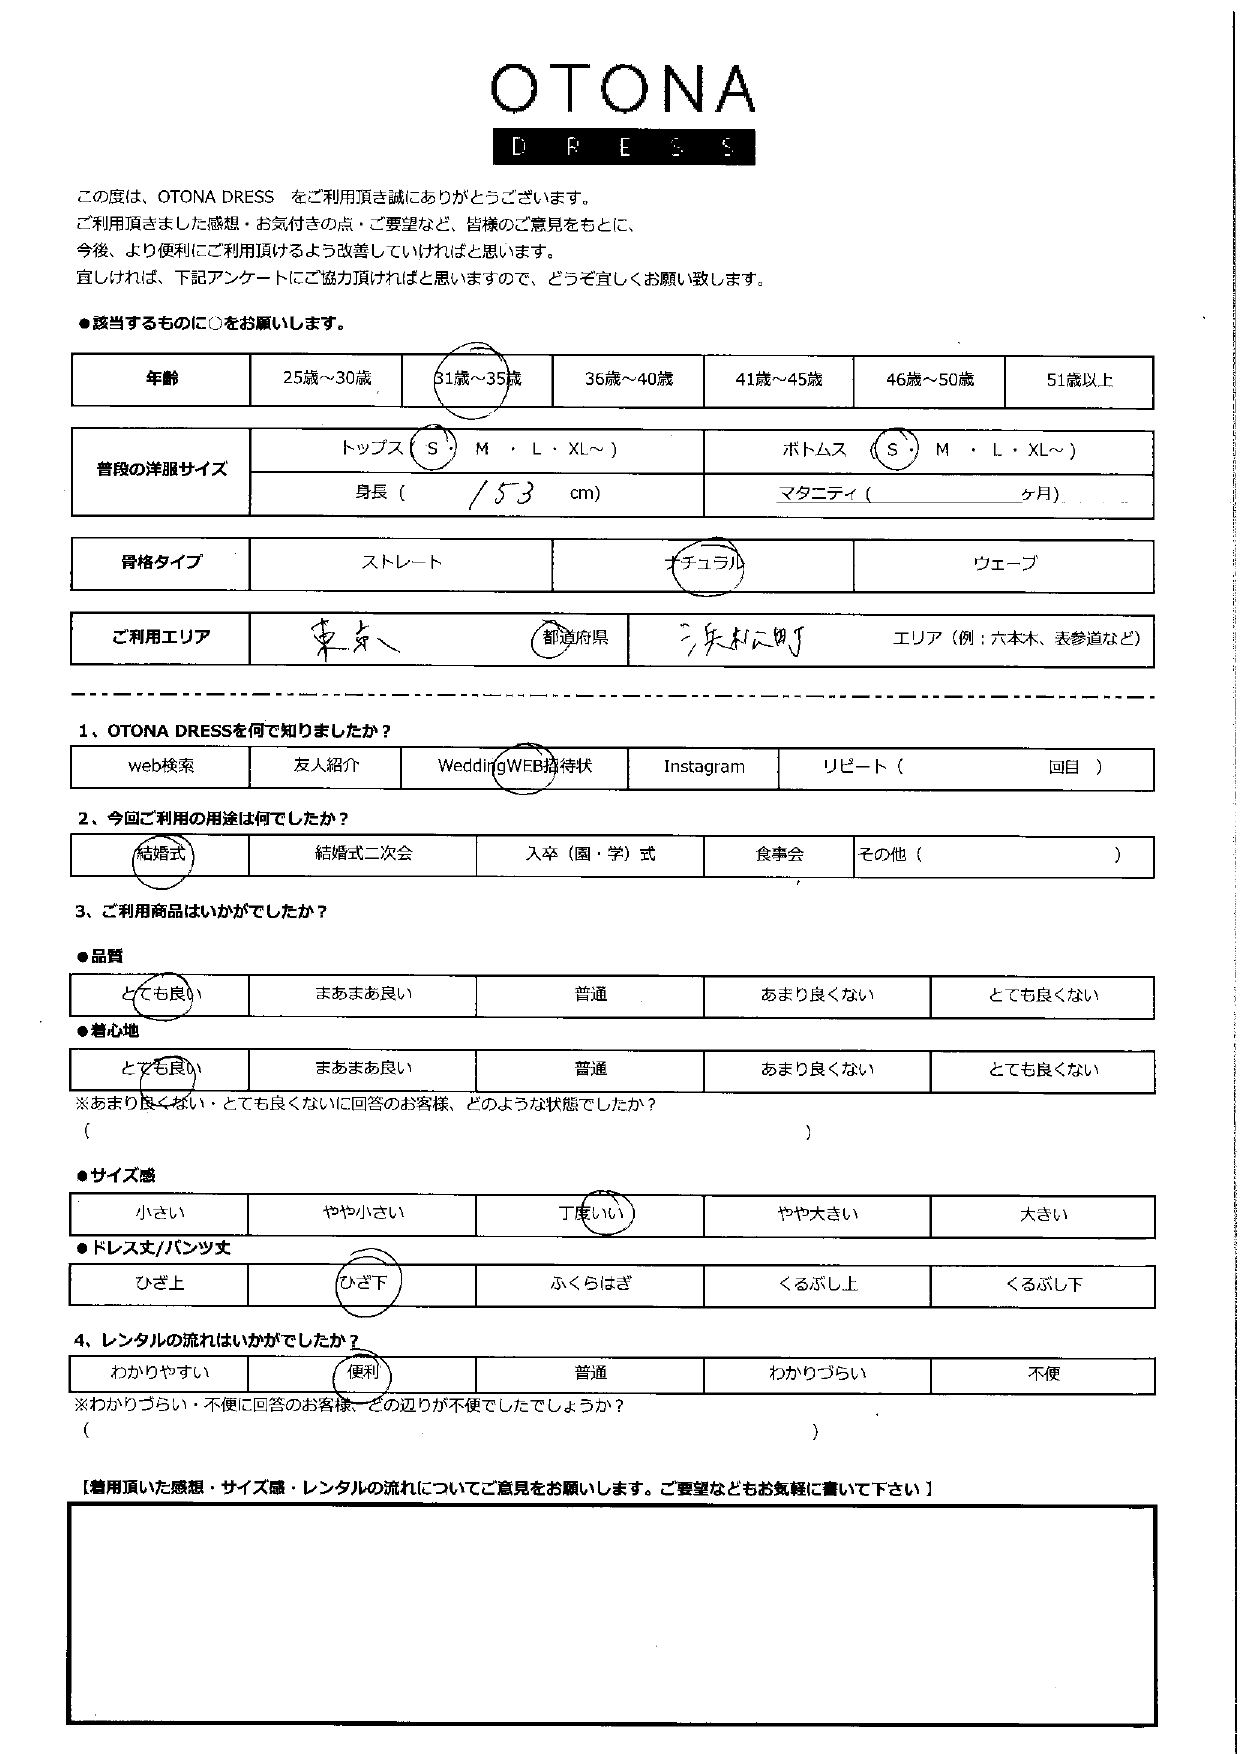 OTONA
DRESS
この度は、OTONA DRESS をご利用頂き誠にありがとうございます。
ご利用頂きました感想・お気付きの点・ご要望など、皆様のご意見をもとに、
今後、より便利にご利用頂けるよう改善していければと思います。
宜しければ、下記アンケートにご協力頂ければと思いますので、どうぞ宜しくお願い致します。
●該当するものに○をお願いします。
年齢 25歳～30歳 31歳～35歳 36歳～40歳 41歳～45歳 46歳～50歳 51歳以上
普段の洋服サイズ トップス ( S ・ M ・ L ・ XL～ ) ボトムス ( S ・ M ・ L ・ XL～ )
身長 ( 153 cm) マタニティ ( ヶ月)
骨格タイプ ストレート ナチュラル ウェーブ
ご利用エリア 東京 都道府県 浜松町 エリア（例：六本木、表参道など）
1、OTONA DRESSを何で知りましたか？
web検索 友人紹介 WeddingWEB招待状 Instagram リピート（ 回目 ）
2、今回ご利用の用途は何でしたか？
結婚式 結婚式二次会 入卒（園・学）式 食事会 その他（ ）
3、ご利用商品はいかがでしたか？
●品質
とても良い まあまあ良い 普通 あまり良くない とても良くない
●着心地
とても良い まあまあ良い 普通 あまり良くない とても良くない
※あまり良くない・とても良くないに回答のお客様、どのような状態でしたか？
（ ）
●サイズ感
小さい やや小さい 丁度いい やや大きい 大きい
●ドレス丈/パンツ丈
ひざ上 ひざ下 ふくらはぎ くるぶし上 くるぶし下
4、レンタルの流れはいかがでしたか？
わかりやすい 便利 普通 わかりづらい 不便
※わかりづらい・不便に回答のお客様、どの辺りが不便でしたでしょうか？
（ ）
【着用頂いた感想・サイズ感・レンタルの流れについてご意見をお願いします。ご要望などもお気軽に書いて下さい 】